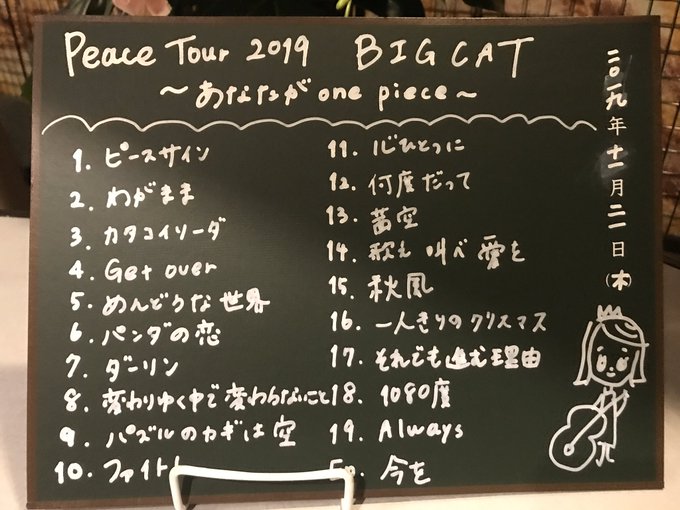 Peace Tour 2019 BIG CAT
～あなたが one piece～
1. ピースサイン
2. わがまま
3. カタコイソーダ
4. Get over
5. めんどうな世界
6. パンダの恋
7. ダーリン
8. 変わりゆく中で変わらないこと
9. パズルのカギは空
10. ファイト
11. 心ひとつに
12. 何度だって
13. 茜空
14. 歌え 叫べ 愛を
15. 秋風
16. 一人きりのクリスマス
17. それでも進む理由
18. 1080度
19. Always
今を
二〇一九年十一月二一日(木)